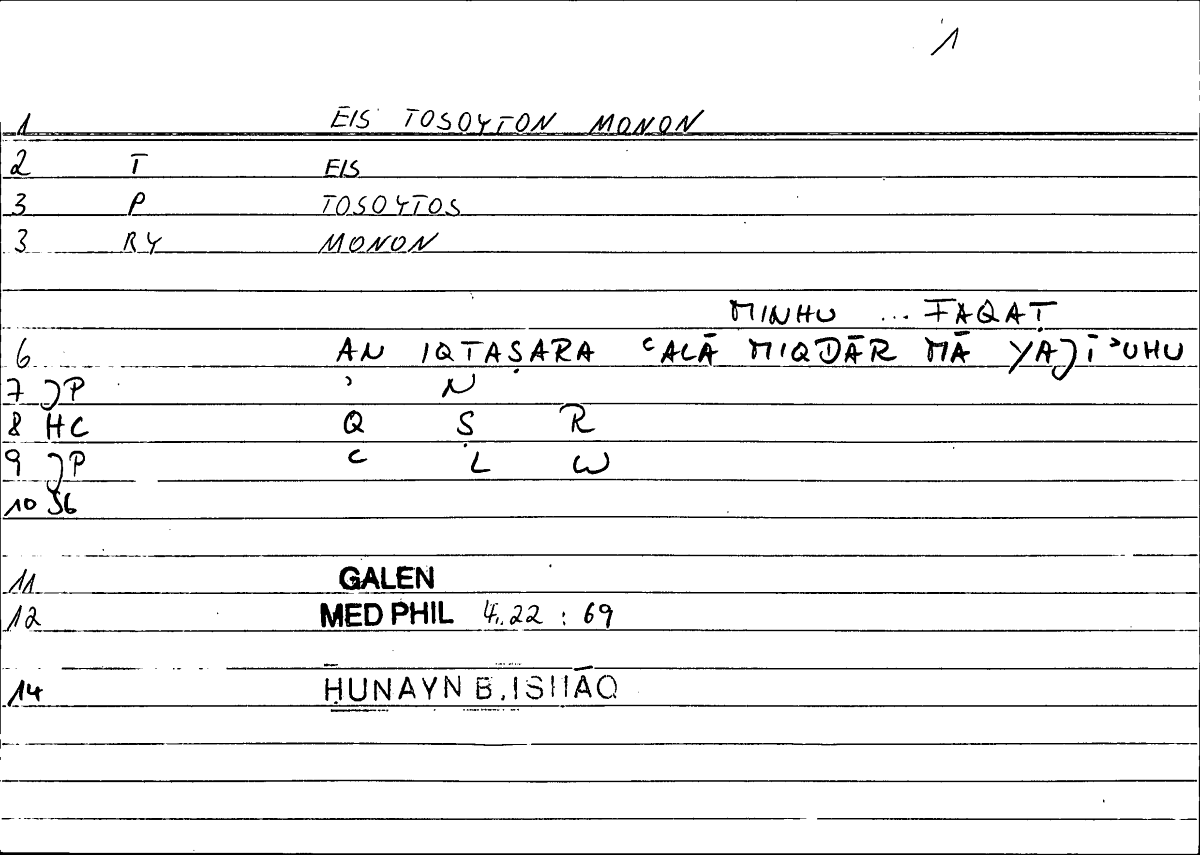 1
1 EIS TOSOYTON MONON
2 T EIS
3 P TOSOYTOS
3 RY MONON
MINHU ... FAQAṬ
6 AN IQTAṢARA ʿALĀ MIQDĀR MĀ YAJĪʾUHU
7 JP ʾ N
8 HC Q Ṣ R
9 JP ʿ L W
10 S6
11 GALEN
12 MED PHIL 4.22 : 69
14 ḤUNAYN B. ISḤĀQ